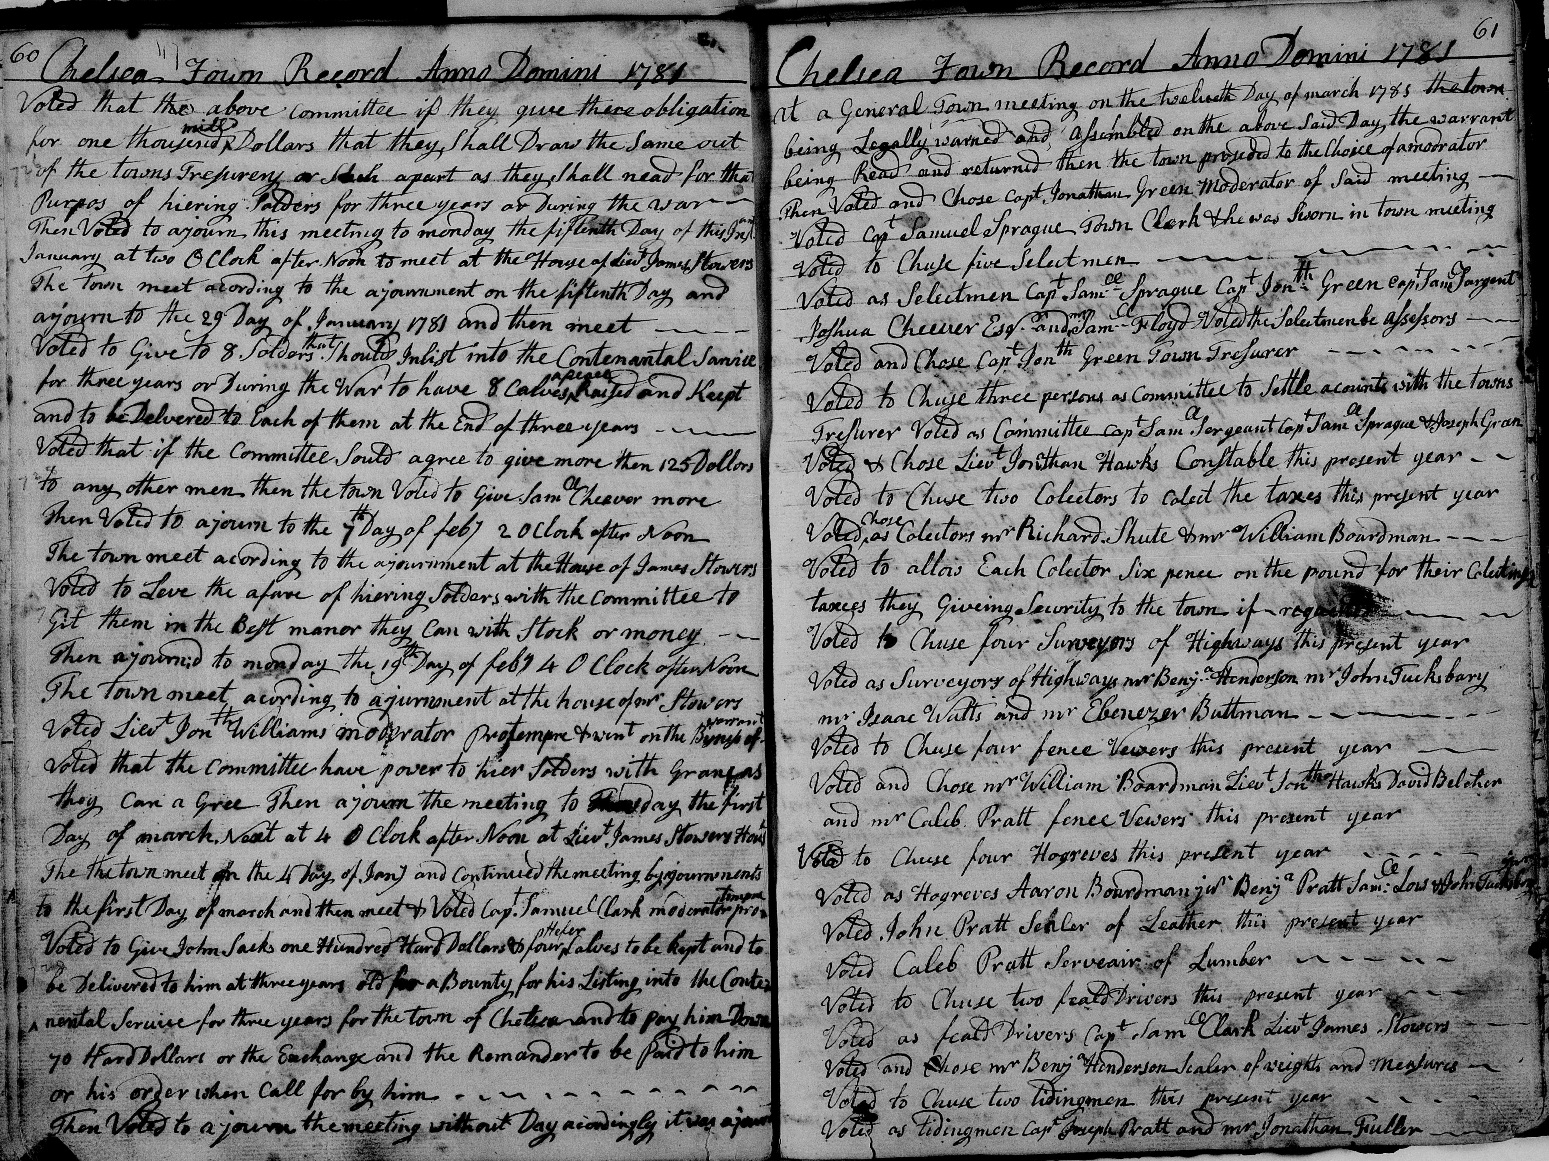 60 Chelsea Town Record Anno Domini 1781
Voted that the above Committee if they give there obligation
for one thousend mill Dollars that they Shall Draw the Same out
of the towns Tresurery or Such apart as they Shall nead for that
Purpos of hiering Solders for three years or During the war
Then Voted to ajourn this meeting to monday the fiftenth Day of this Inst
January at two O Clock after Noon to meet at the House of Lieut James Stowers
The town meet acording to the ajournment on the fiftenth Day and
ajourn to the 29 Day of January 1781 and then meet
Voted to Give to 8 Solders that Should Inlist into the Contenantal Sarvice
for three years or During the War to have 8 Calves apeace Raised and Keept
and to be Delivered to Each of them at the End of three years
Voted that if the Committee Sould agree to give more then 125 Dollors
to any other men then the town Voted to Give Saml Cheever more
Then Voted to ajourn to the 7th Day of feby 2 O Clock after Noon
The town meet acording to the ajournment at the House of James Stowers
Voted to Leve the afare of hiering Solders with the Committee to
Git them in the Best manor they Can with Stock or money
Then ajournid to monday the 19th Day of feby 4 O Clock after Noon
The town meet acording to ajurnment at the house of mr Stowers
Voted Lieut Jonth Williams moderator Protempre & wint on the Bynss of warrant
Voted that the Committee have pover to hier Solders with Grane as
they Can a Gree Then ajourn the meeting to day the first
Day of march Next at 4 O Clock after Noon at Lieut James Stowers House
The the town meet on the 4 Day of Jany and Continued the meeting by ajournments
to the first Day of march and then meet & Voted Capt Samuel Clark moderator pro tempre
Voted to Give John Sack one Hundred Hard Dollars & four Hefer Calves to be kept and to
be Delivered to him at three years old for a Bounty for his Listing into the Conte
nental Service for three years for the town of Chelsea and to pay him Down
70 Hard Dollars or the Exchange and the Remander to be Paid to him
or his order when Call for by him
Then Voted to ajourn the meeting without Day acordingly it was ajourn
61
Chelsea Town Record Anno Domini 1781
At a General Town meeting on the twelveth Day of march 1781 the town
being Legally warned and assembled on the above Said Day the warrant
being Read and returned then the town proseded to the Choice of amodrator
Then Voted and Chose Capt Jonathan Green Moderator of Said meeting
Voted Capt Samuel Sprague Town Clerk & he was Sworn in town meeting
Voted to Chuse five Selectmen
Voted as Selectmen Capt Samll Sprague Capt Jonth Green Capt Saml Sargent
Joshua Cheever Esqr and mr Samll Floyd Voted the Selectmen be Assessors
Voted and Chose Capt Jonth Green Town Tresurer
Voted to Chuse three persons as Committee to Settle acounts with the towns
Tresurer Voted as Committee Capt Saml Sergeant Capt Saml Sprague & Joseph Green
Voted & Chose Lieut Jonthan Hawks Constable this present year
Voted to Chuse two Colectors to colect the taxes this present year
Voted Chose as Colectors mr Richard Shute & mr William Boardman
Voted to allow Each Colector Six pence on the pound for their Colecting
taxees they Giveing Security to the town if
Voted to Chuse four Surveyors of Highways this present year
Voted as Surveyors of Highways mr Benja Henderson mr John Tucksbary
mr Isaac Watts and mr Ebenezer Buttman
Voted to Chuse four fence Vewers this present year
Voted and Chose mr William Boardman Lieut Jonth Hawks David Belcher
and mr Caleb Pratt fence Vewers this present year
Voted to Chuse four Hogreves this present year
Voted as Hogreves Aaron Boardman junr Benja Pratt Samll Low & John Tucksbry
Voted John Pratt Sealer of Leather this present year
Voted Caleb Pratt Serveair of Lumber
Voted to Chuse two feald Drivers this present year
Voted as feald Drivers Capt Samll Clark Lieut James Stowers
Voted and Chose mr Benj Henderson Sealer of weights and measures
Voted to Chuse two tidingmen this present year
Voted as tidingmen Capt Joseph Pratt and mr Jonathan Fuller